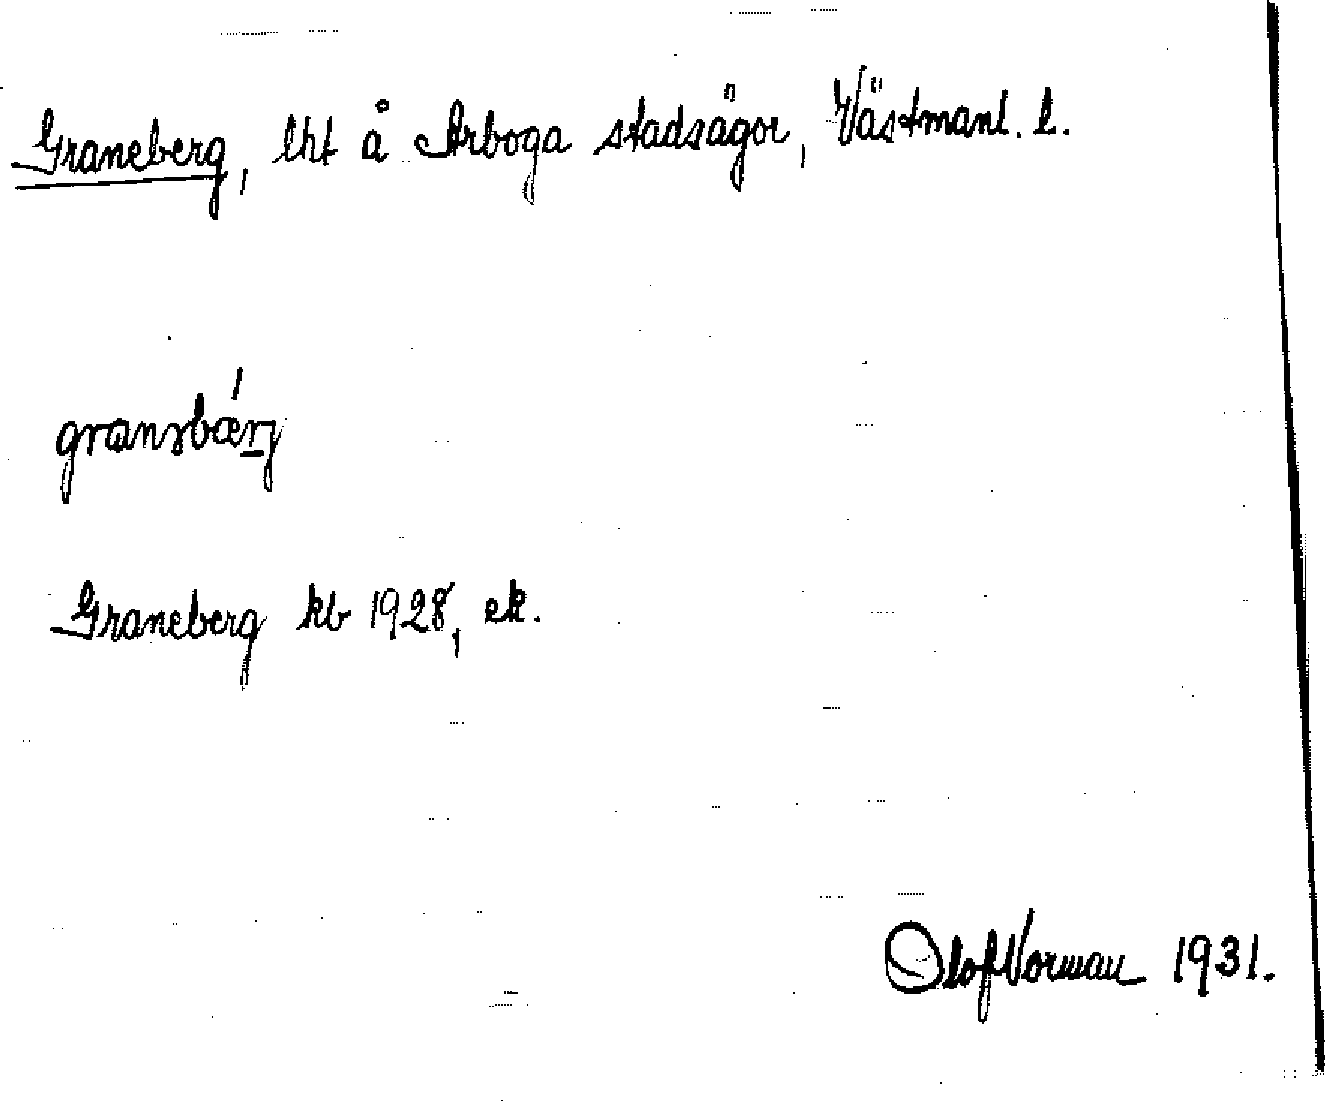 Graneberg, lht å Arboga stadsägor, Västmanl. l.
granəbǽrj
Graneberg kb 1928, ek.
Olof Vorman 1931.